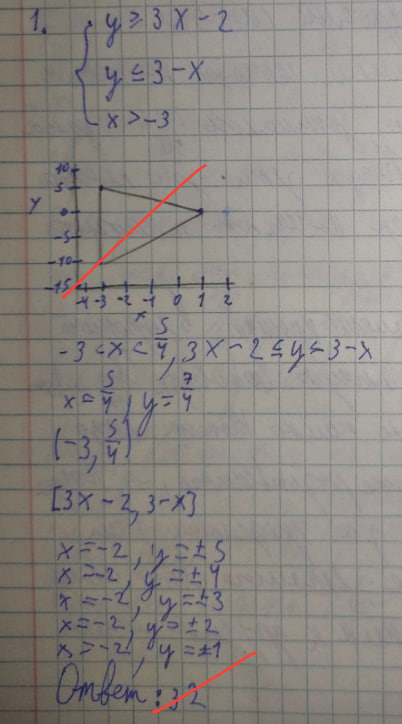 1. { y ≥ 3x - 2
y ≤ 3 - x
x > -3
10
5
y 0
-5
-10
-15
-4 -3 -2 -1 0 1 2
x
-3 < x < 5/4, 3x - 2 ≤ y ≤ 3 - x
x = 5/4, y = 7/4
(-3, 5/4)
[3x - 2, 3 - x]
x = -2, y = ±5
x = -2, y = ±4
x = -2, y = ±3
x = -2, y = ±2
x = -2, y = ±1
Ответ: 32